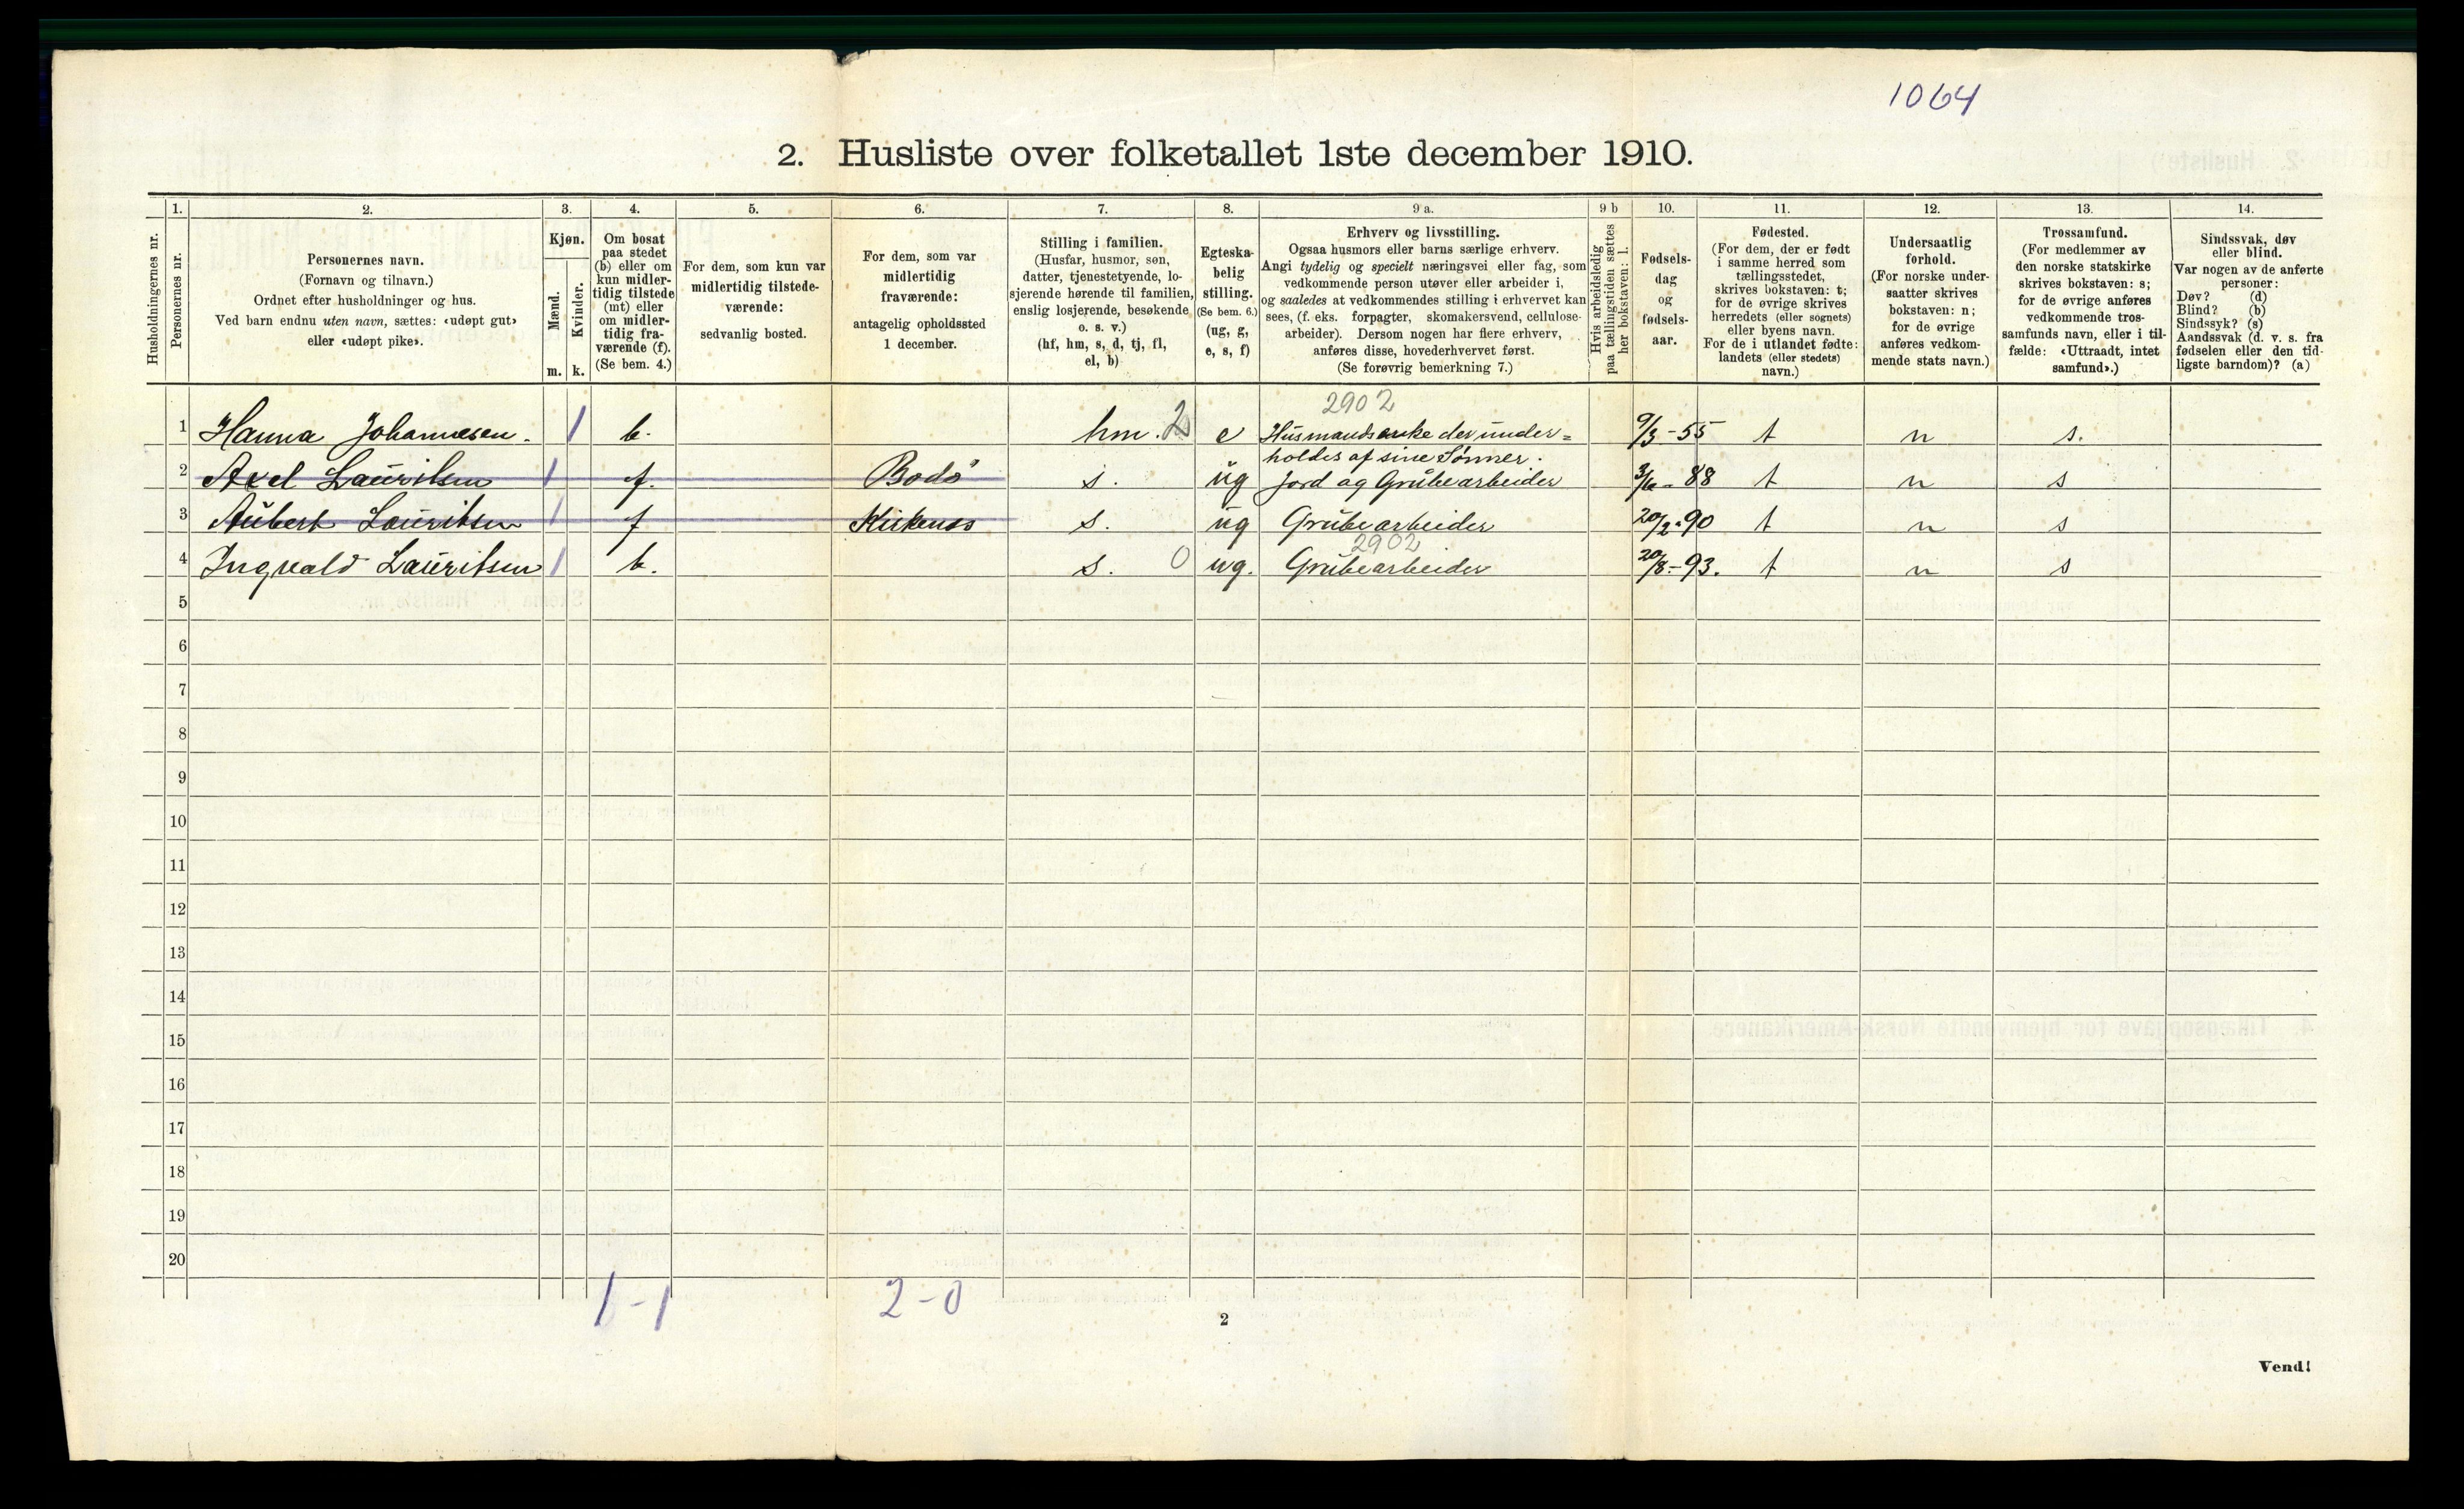 1064
2. Husliste over folketallet 1ste december 1910.
Husholdningernes nr.
1. Personernes nr.
2. Personernes navn.
(Fornavn og tilnavn.)
Ordnet efter husholdninger og hus.
Ved barn endnu uten navn, sættes: «udøpt gut»
eller «udøpt pike».
3. Kjøn.
Mænd. Kvinder.
m. k.
4. Om bosat
paa stedet
(b) eller om
kun midler-
tidig tilstede
(mt) eller
om midler-
tidig fra-
værende (f).
(Se bem. 4.)
5. For dem, som kun var
midlertidig tilstede-
værende:
sedvanlig bosted.
6. For dem, som var
midlertidig
fraværende:
antagelig opholdssted
1 december.
7. Stilling i familien.
(Husfar, husmor, søn,
datter, tjenestetyende, lo-
sjerende hørende til familien,
enslig losjerende, besøkende
o. s. v.)
(hf, hm, s, d, tj, fl,
el, b)
8. Egteska-
belig
stilling.
(Se bem. 6.)
(ug, g,
e, s, f)
9 a. Erhverv og livsstilling.
Ogsaa husmors eller barns særlige erhverv.
Angi tydelig og specielt næringsvei eller fag, som
vedkommende person utøver eller arbeider i,
og saaledes at vedkommendes stilling i erhvervet kan
sees, (f. eks. forpagter, skomakersvend, cellulose-
arbeider). Dersom nogen har flere erhverv,
anføres disse, hovederhvervet først.
(Se forøvrig bemerkning 7.)
9 b Hvis arbeidsledig
paa tællingstiden sættes
her bokstaven: l.
10. Fødsels-
dag
og
fødsels-
aar.
11. Fødested.
(For dem, der er født
i samme herred som
tællingsstedet,
skrives bokstaven: t;
for de øvrige skrives
herredets (eller sognets)
eller byens navn.
For de i utlandet fødte:
landets (eller stedets)
navn.)
12. Undersaatlig
forhold.
(For norske under-
saatter skrives
bokstaven: n;
for de øvrige
anføres vedkom-
mende stats navn.)
13. Trossamfund.
(For medlemmer av
den norske statskirke
skrives bokstaven: s;
for de øvrige anføres
vedkommende tros-
samfunds navn, eller i til-
fælde: «Uttraadt, intet
samfund».)
14. Sindssvak, døv
eller blind.
Var nogen av de anførte
personer:
Døv? (d)
Blind? (b)
Sindssyk? (s)
Aandssvak (d. v. s. fra
fødselen eller den tid-
ligste barndom)? (a)
2902
1 Hanna Johannesen. 1 b. hm. 2 e Husmandsenke der under= 9/3-55 t n s.
holdes af sine Sønner.
2 Axel Lauritsen 1 f. Bodö s. ug Jord og Grubearbeider 3/6-88 t n s
3 Aubert Lauritsen 1 f Kirkenes s. ug Grubearbeider 20/2-90 t n s
2902
4 Ingvald Lauritsen 1 b. s. 0 ug. Grubearbeider 20/8-93. t n s
5
6
7
8
9
10
11
12
13
14
15
16
17
18
19
20
1-1 2-0
2
Vend!